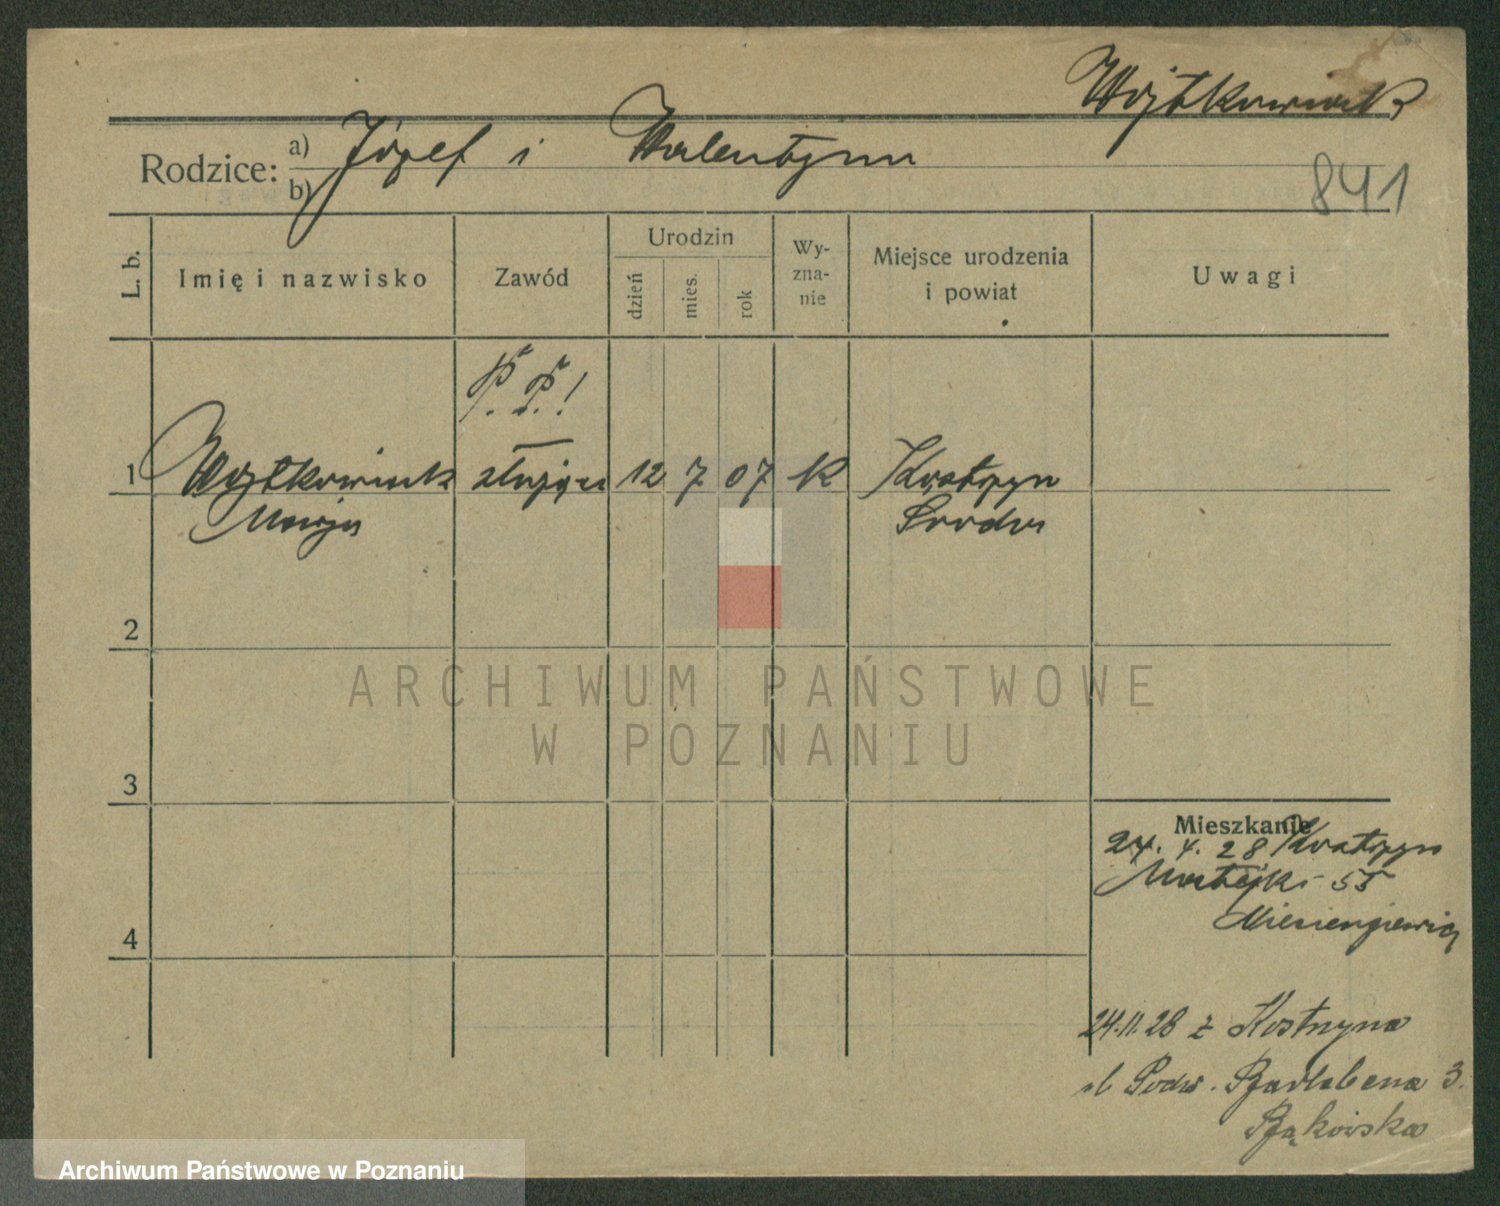 Wojtkowiak
Rodzice: a) Józef i Walentyna
b)
841
L. b.
Imię i nazwisko
Zawód
Urodzin
dzień
mies.
rok
Wy-
zna-
nie
Miejsce urodzenia
i powiat
Uwagi
P. P.!
1 Wojtkowiak służąca 12 7 07 K Kostrzyn
Marja Środa
2
ARCHIWUM PAŃSTWOWE
W POZNANIU
3
Mieszkanie
24. 4. 28 Kostrzyn
Matejki 55
4
24.11.28 z Kostrzyna
3.
Bąkowska
Archiwum Państwowe w Poznaniu